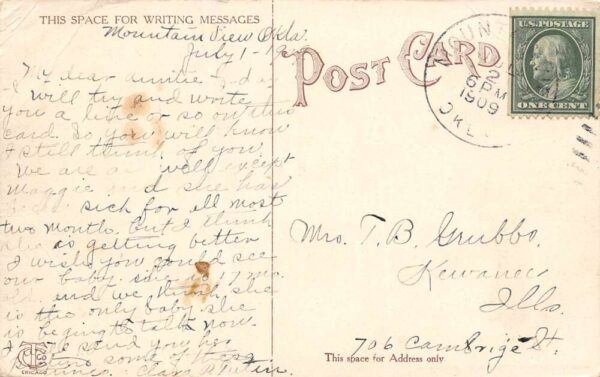 THIS SPACE FOR WRITING MESSAGES
Mountain View Okla.
July 1 - 19
My dear auntie
will try and write
you a line or so on this
card. So you will know
I still think of you.
We are all well except
Maggie and she has
sick for all most
two month. But I think
she is getting better
I wish you could see
our baby she is 17 mo.
old. and we think she
is the only baby. she
is beging to talk now.
I send you her
some of these
Clara
CHICAGO
POST CARD
MOUNTAIN
2
6 PM
1909
OKLA
U.S. POSTAGE
ONE CENT
Mrs. T. B. Grubbs.
Kewanee
Ills.
706 Cambrige St.
This space for Address only